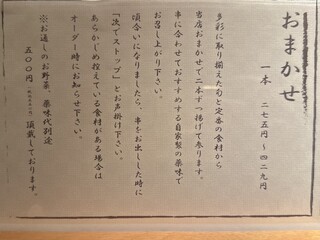 おまかせ
一本 二七五円〜四二九円
多彩に取り揃えた旬と定番の食材から
当店おまかせで二本ずつ揚げて参ります。
串に合わせておすすめする自家製の薬味で
お召し上がり下さい。
頃合いになりましたら、串をお出しした時に
「次でストップ」とお声掛け下さい。
あらかじめ控えている食材がある場合は
オーダー時にお知らせ下さい。
※お通しのお野菜、薬味代別途
五〇〇円 頂戴しております。